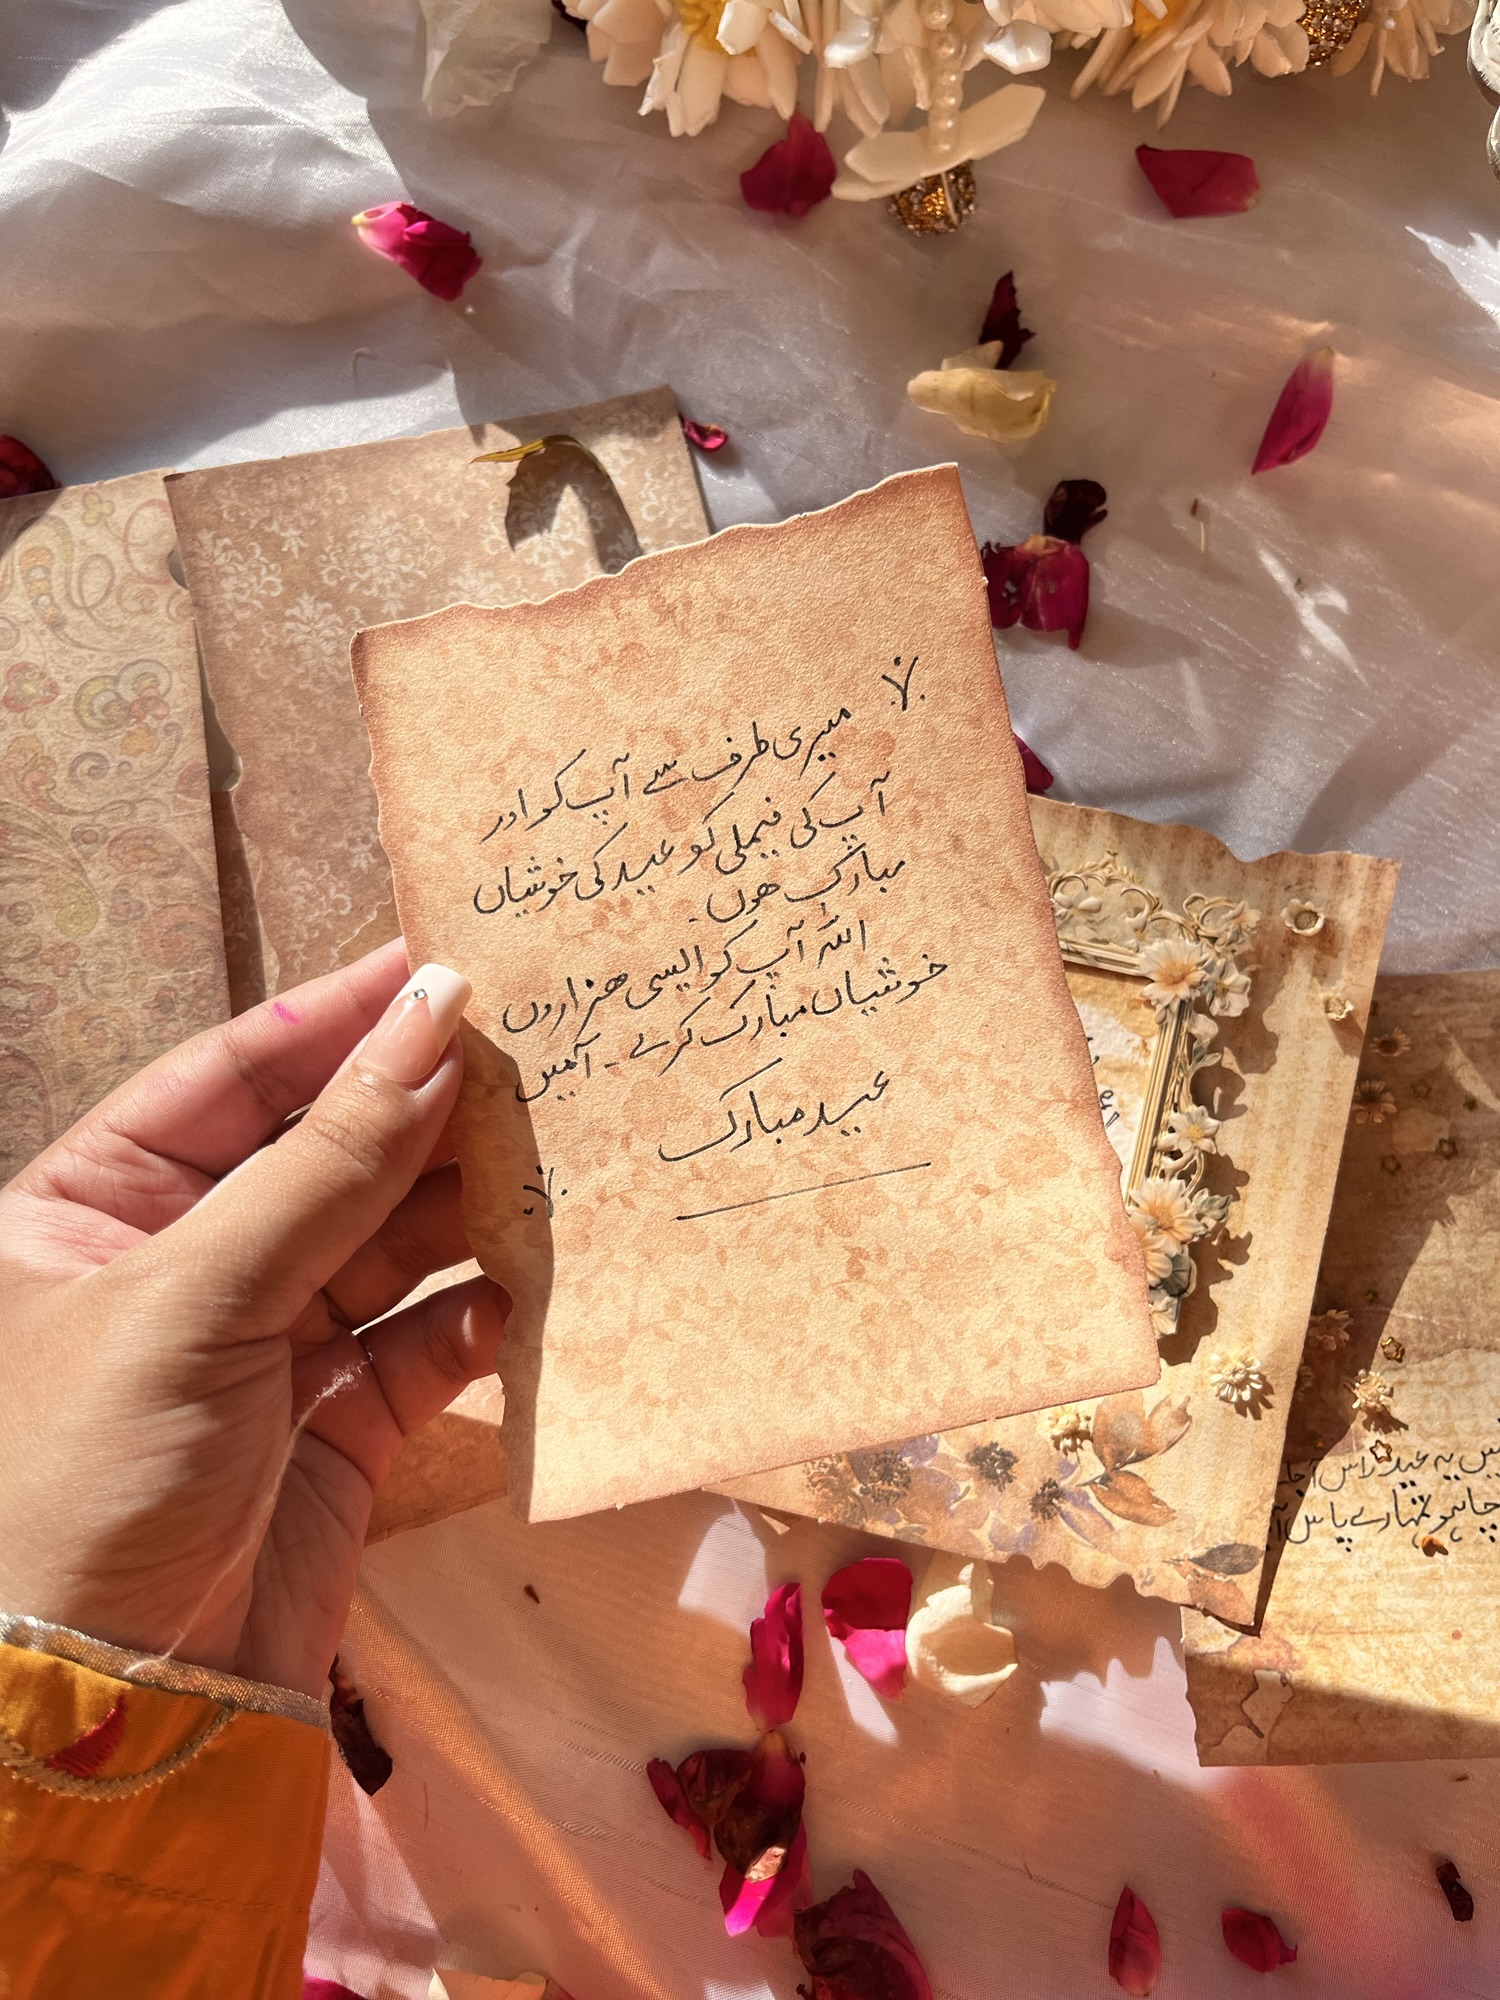 میری طرف سے آپ کو اور
آپ کی فیملی کو عید کی خوشیاں
مبارک ھوں۔
اللہ آپ کو ایسی ھزاروں
خوشیاں مبارک کرے۔ آمین
عید مبارک
یہ عید راس آجا
چاہو تمہارے پاس آ